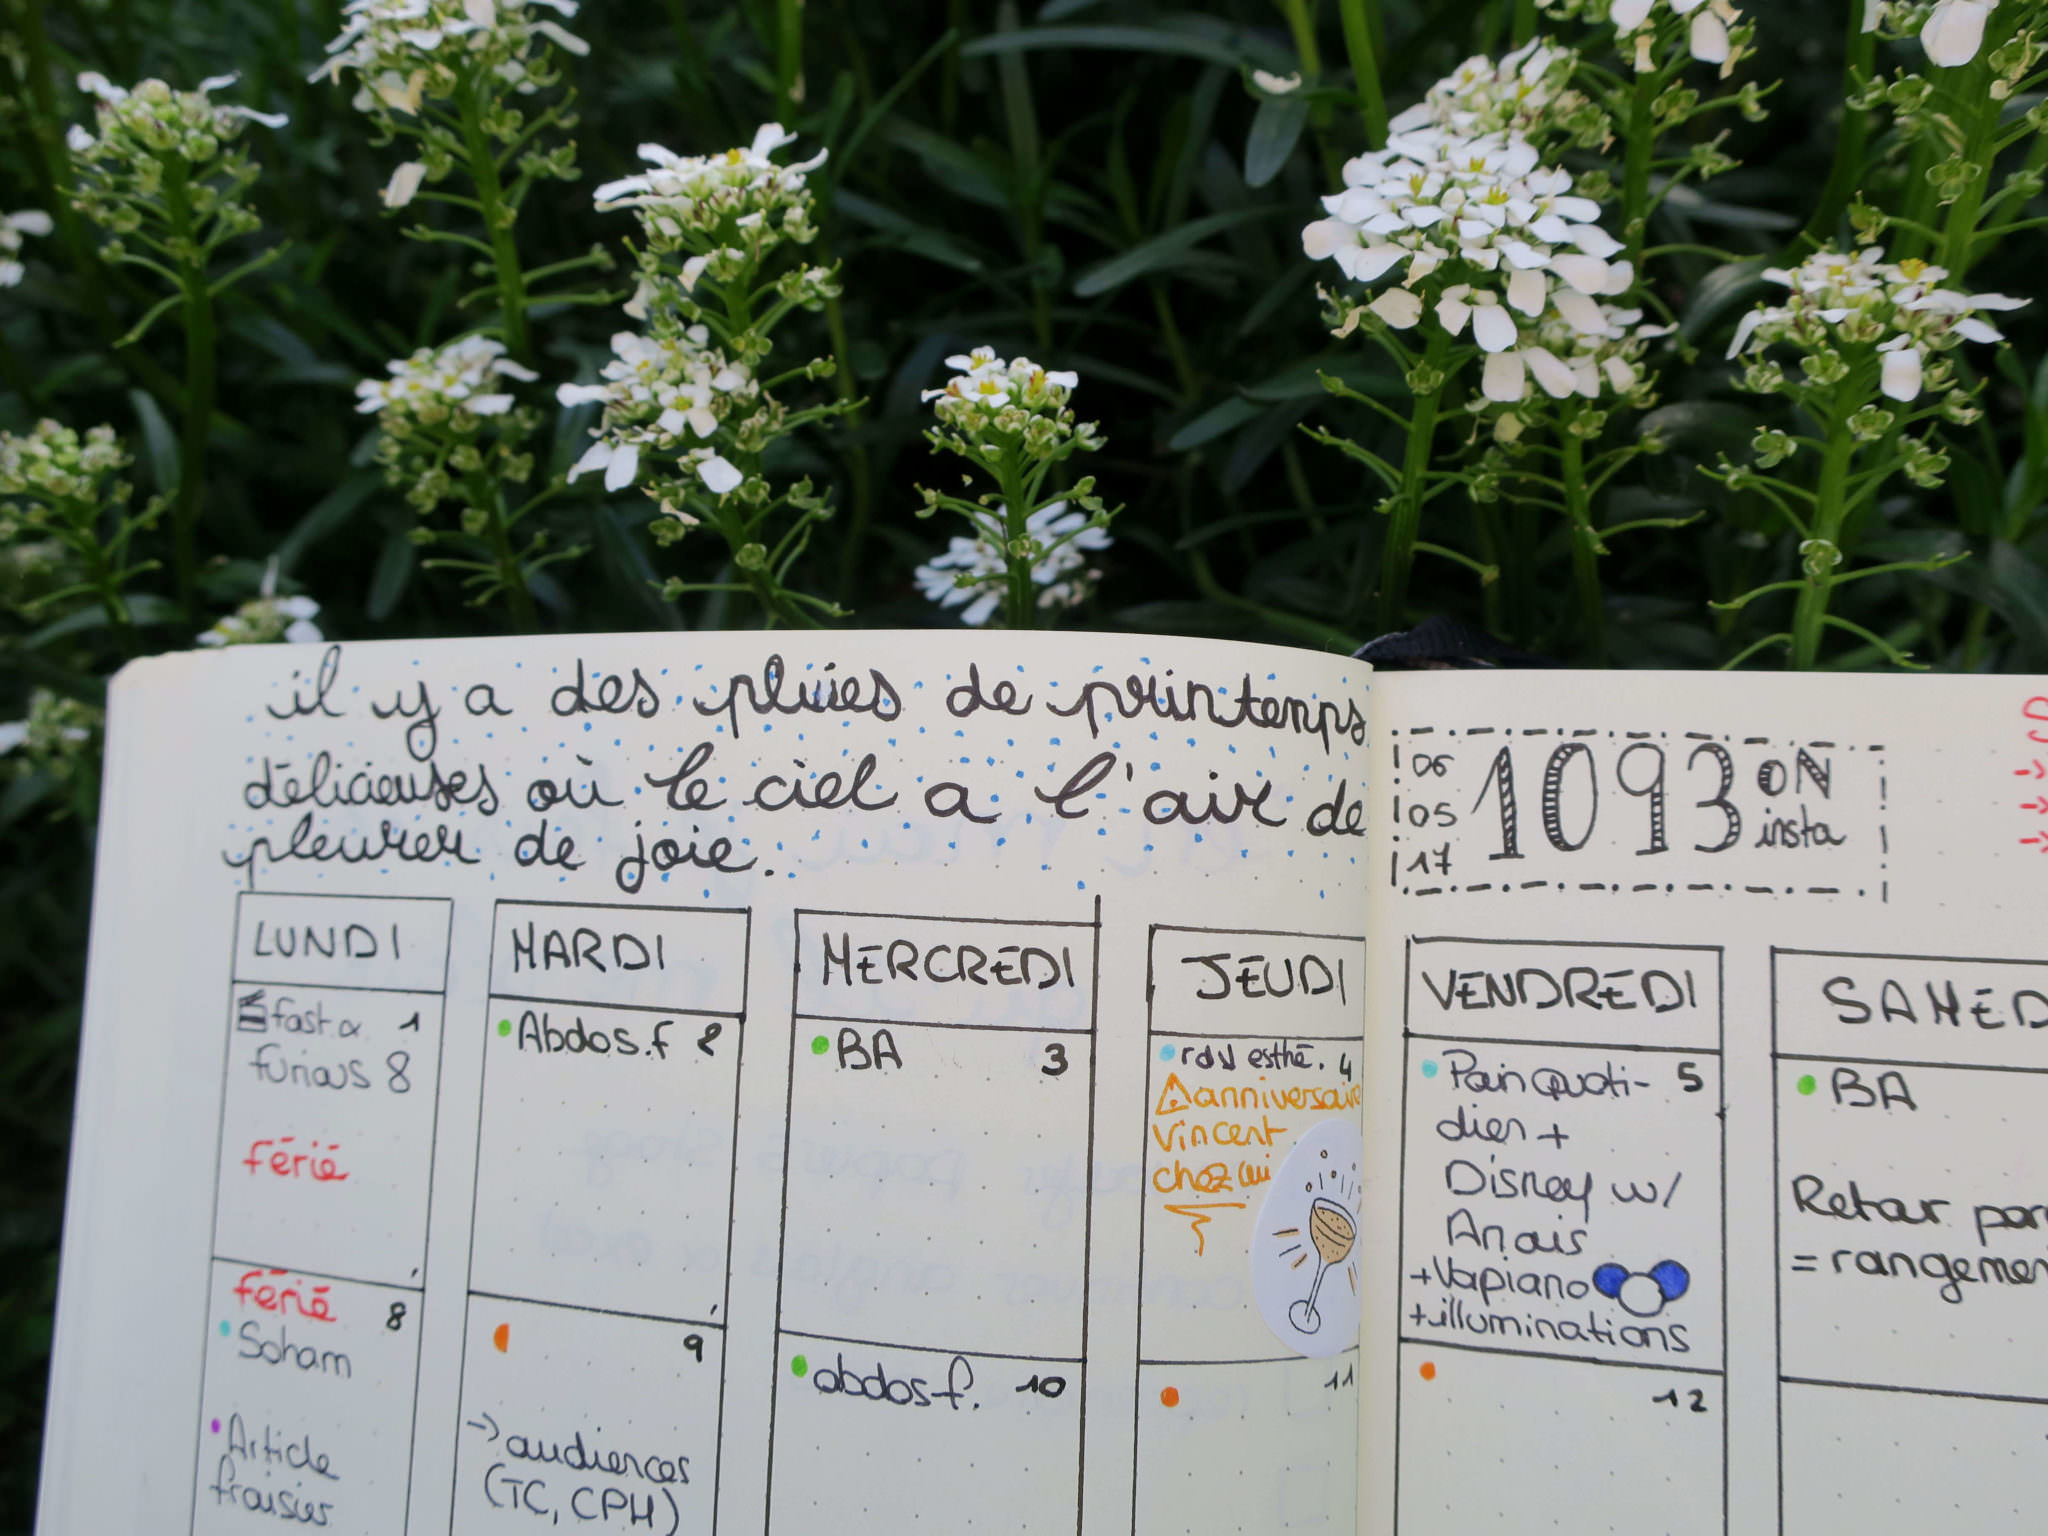 il y a des pluies de printemps
délicieuses où le ciel a l'air de
pleurer de joie.
06
05
17
1093 ON
insta
LUNDI
MARDI
MERCREDI
JEUDI
VENDREDI
SAMED
fast & 1
furious 8
férié
Abdos.f 2
BA 3
rdv esthé. 4
anniversaire
Vincent
chez lui
Pain Quoti- 5
dien +
Disney w/
Anais
+Vapiano
+illuminations
BA
Retour par
= rangemen
férié 8
Soham
Article
fraisier
9
→ audiences
(TC, CPH)
abdos f. 10
11
12